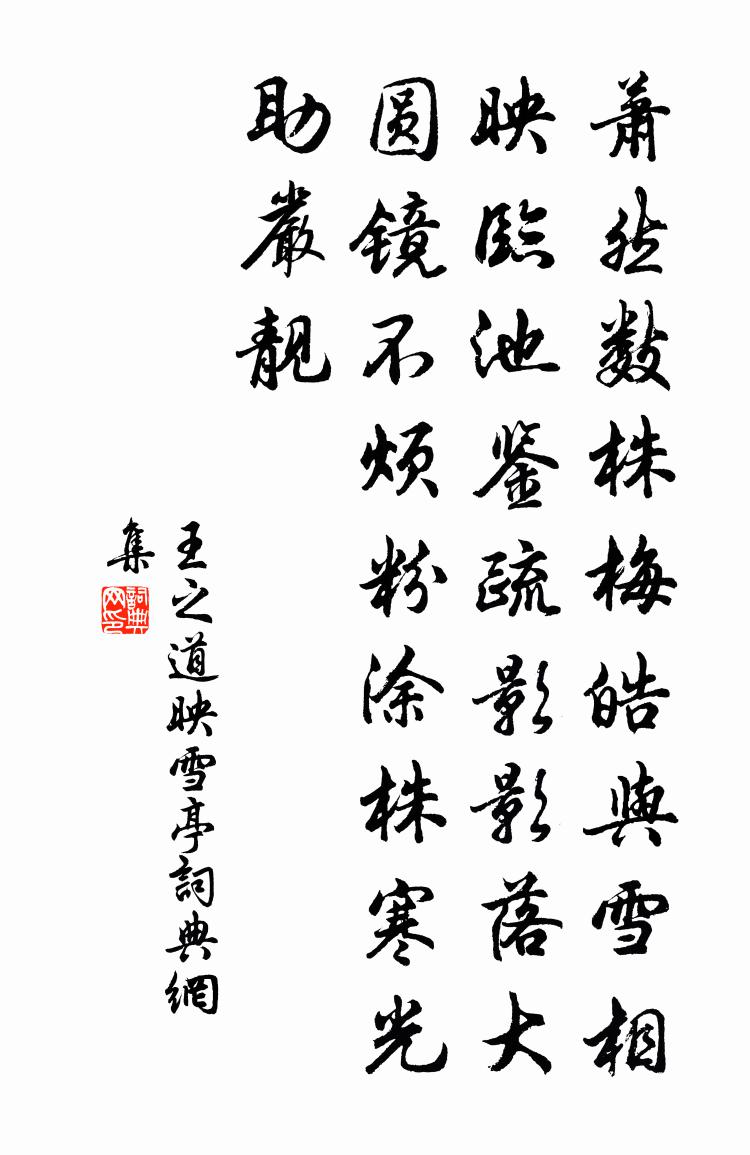 萧然数株梅皓與雪相
映臨池鉴疏影影落大
圆镜不烦粉涂株寒光
助嚴靓
王之道映雪亭詞典網
集
詞典网印